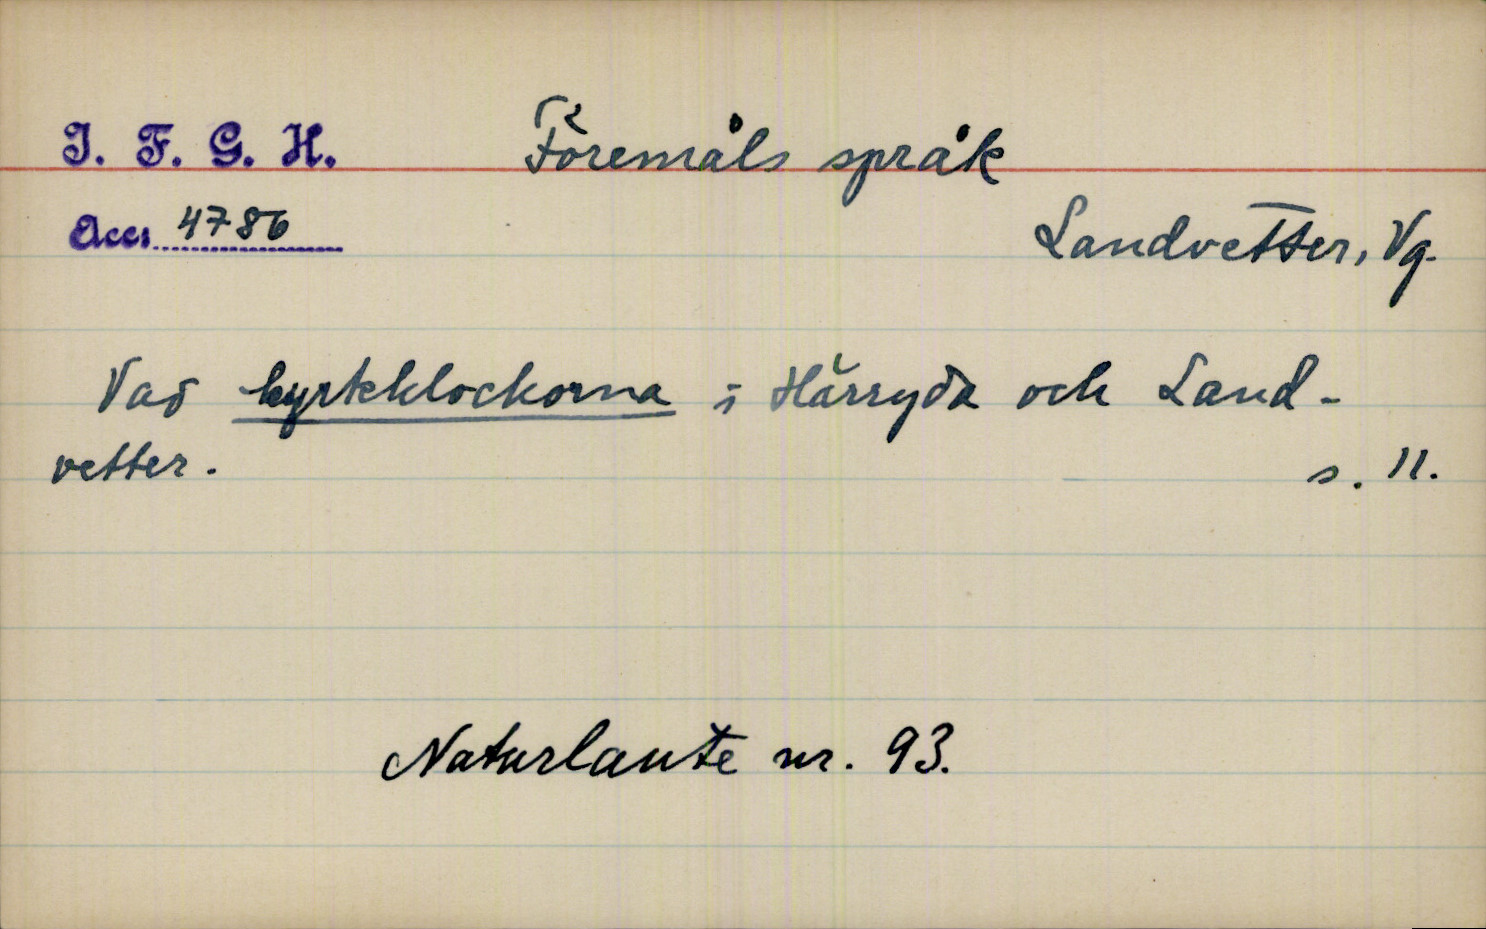 I. F. G. H.
Föremåls språk
Acc. 4786
Landvetter, Vg.
Vad kyrkklockorna i Härryda och Land-
vetter.
s. 11.
Naturlaute nr. 93.